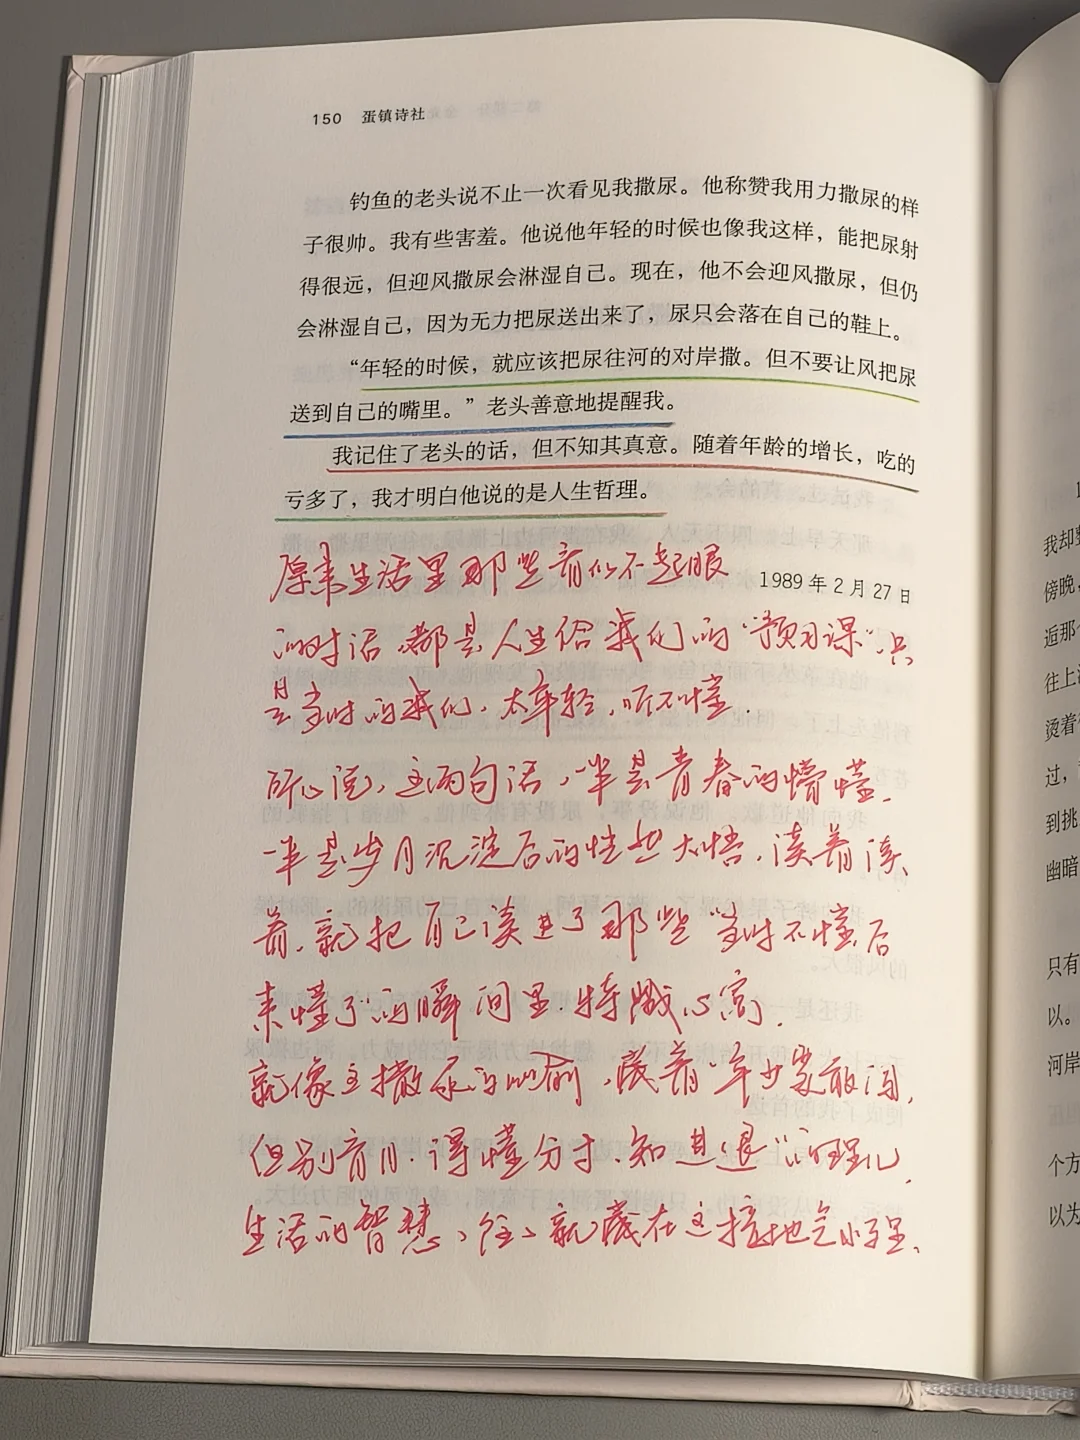 150 蛋镇诗社
钓鱼的老头说不止一次看见我撒尿。他称赞我用力撒尿的样
子很帅。我有些害羞。他说他年轻的时候也像我这样，能把尿射
得很远，但迎风撒尿会淋湿自己。现在，他不会迎风撒尿，但仍
会淋湿自己，因为无力把尿送出来了，尿只会落在自己的鞋上。
“年轻的时候，就应该把尿往河的对岸撒。但不要让风把尿
送到自己的嘴里。”老头善意地提醒我。
我记住了老头的话，但不知其真意。随着年龄的增长，吃的
亏多了，我才明白他说的是人生哲理。
1989年2月27日
原来生活里那些看似不起眼
的对话，都是人生给我们的“预习课”，只
是当时的我们，太年轻，听不懂.
所以说，这两句话，一半是青春的懵懂，
一半是岁月沉淀后的恍然大悟，读着读
着，就把自己读进了那些“当时不懂，后
来懂了”的瞬间里.特戳心窝.
就像这撒尿的比喻，藏着“年少要敢闯，
但别盲目.得懂分寸、知进退”的理儿，
生活的智慧，往往就藏在这接地气小子里，
我却
傍晚，
逅那
往上
烫着
过，
到挑
幽暗
只有
以。
河岸
个方
以为